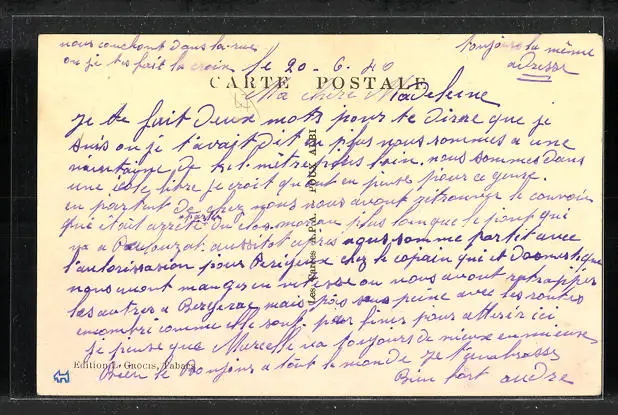 nous couchont dans la rue
ou je tes fait la croix
le 20-6-40
toujours la même
adresse
CARTE POSTALE
Ma chère Madeleine
je te fait deux mots pour te dire que je
suis ou je t'avait dit plus nous sommes a une
vaintaine de kilmètre plus loin, nous sommes dans
une école libre je croit
en partant de chez nous nous avont retrouver le convoir
qui était arrêté plus loin que le pont qui
va a aussitot après nous somme partit avec
l'autorisasion pour Perigeux chez le copain qui et domestique
nous avont manger en vitesse ou nous avont rattrapper
les autres a Bergerac mais pas sans peine avec les routes
encombré comme elle sont pour finir pour atterir ici
je pense que Marcelle va toujours de mieux en mieux
Bien le Bonjour a tout le monde je t'enbrasse
Bien fort andre
Les Cartes A.P.A. POUX ALBI
Edition Grocis, Tabacs